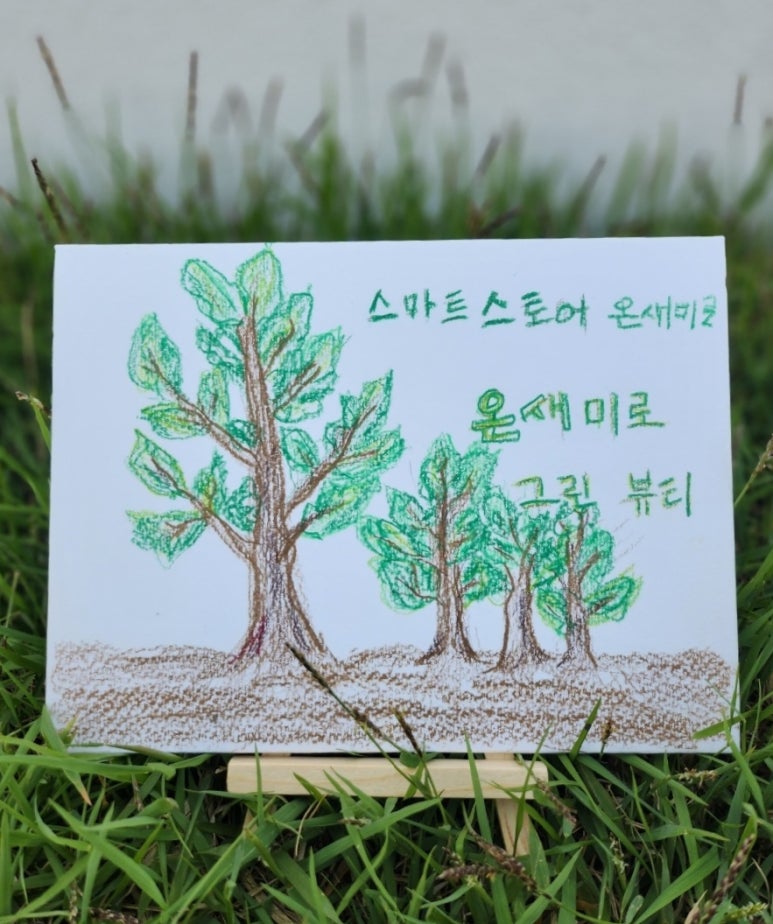 스마트스토어 온새미로
온새미로
그린 뷰티